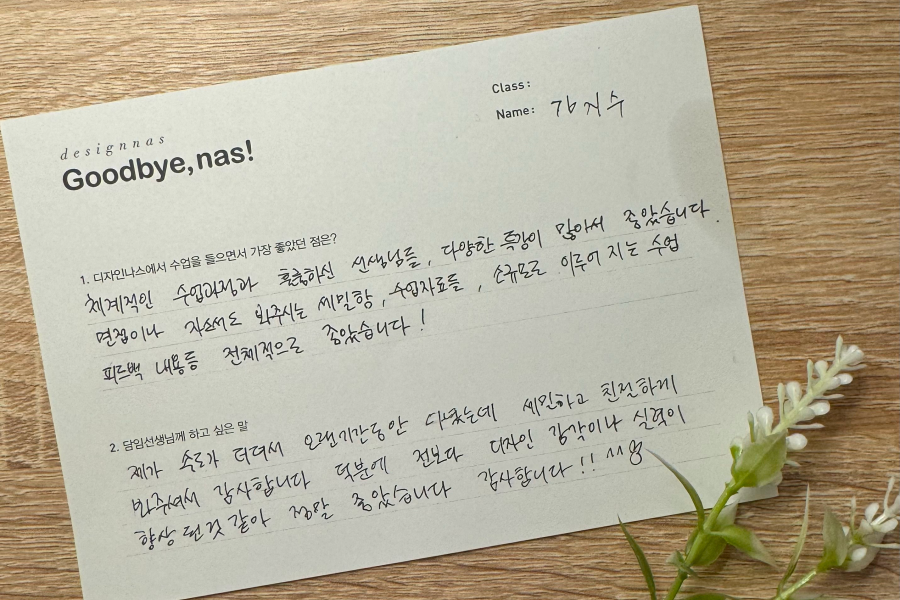 Class:
Name: 강지수
designnas
Goodbye, nas!
1. 디자인나스에서 수업을 들으면서 가장 좋았던 점은?
체계적인 수업과정과 훌륭하신 선생님들, 다양한 특강이 많아서 좋았습니다.
면접이나 자소서도 봐주시는 세밀함, 수업자료들, 소규모로 이루어지는 수업
피드백 내용등 전체적으로 좋았습니다!
2. 담임선생님께 하고 싶은 말
제가 속도가 더뎌서 오랜기간동안 다녔는데 세밀하고 친절하게
봐주셔서 감사합니다 덕분에 전보다 디자인 감각이나 실력이
향상 된것 같아 정말 좋았습니다 감사합니다!! ^^